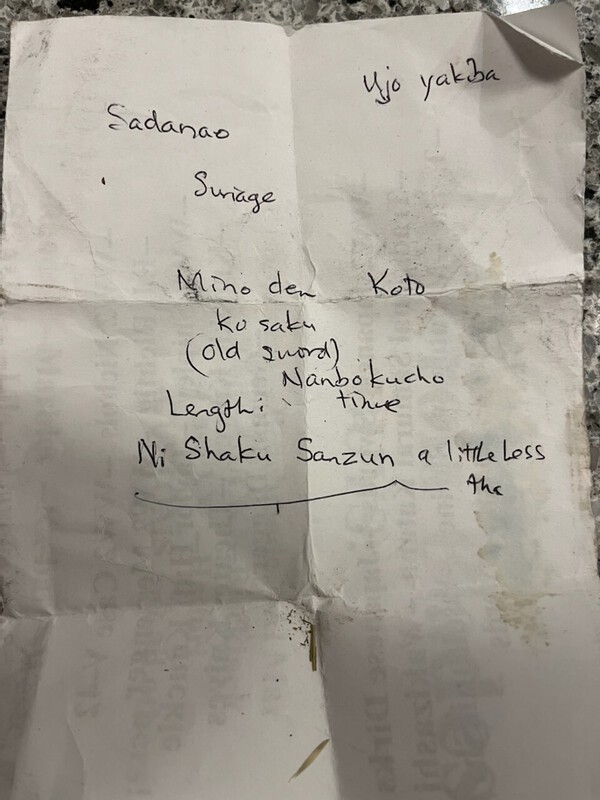 Ujo yakiba
Sadanao
Suriage
Mino den Koto
ko saku
(old sword)
Nanbokucho
Length: time
Ni Shaku Sanzun a little Less
tha